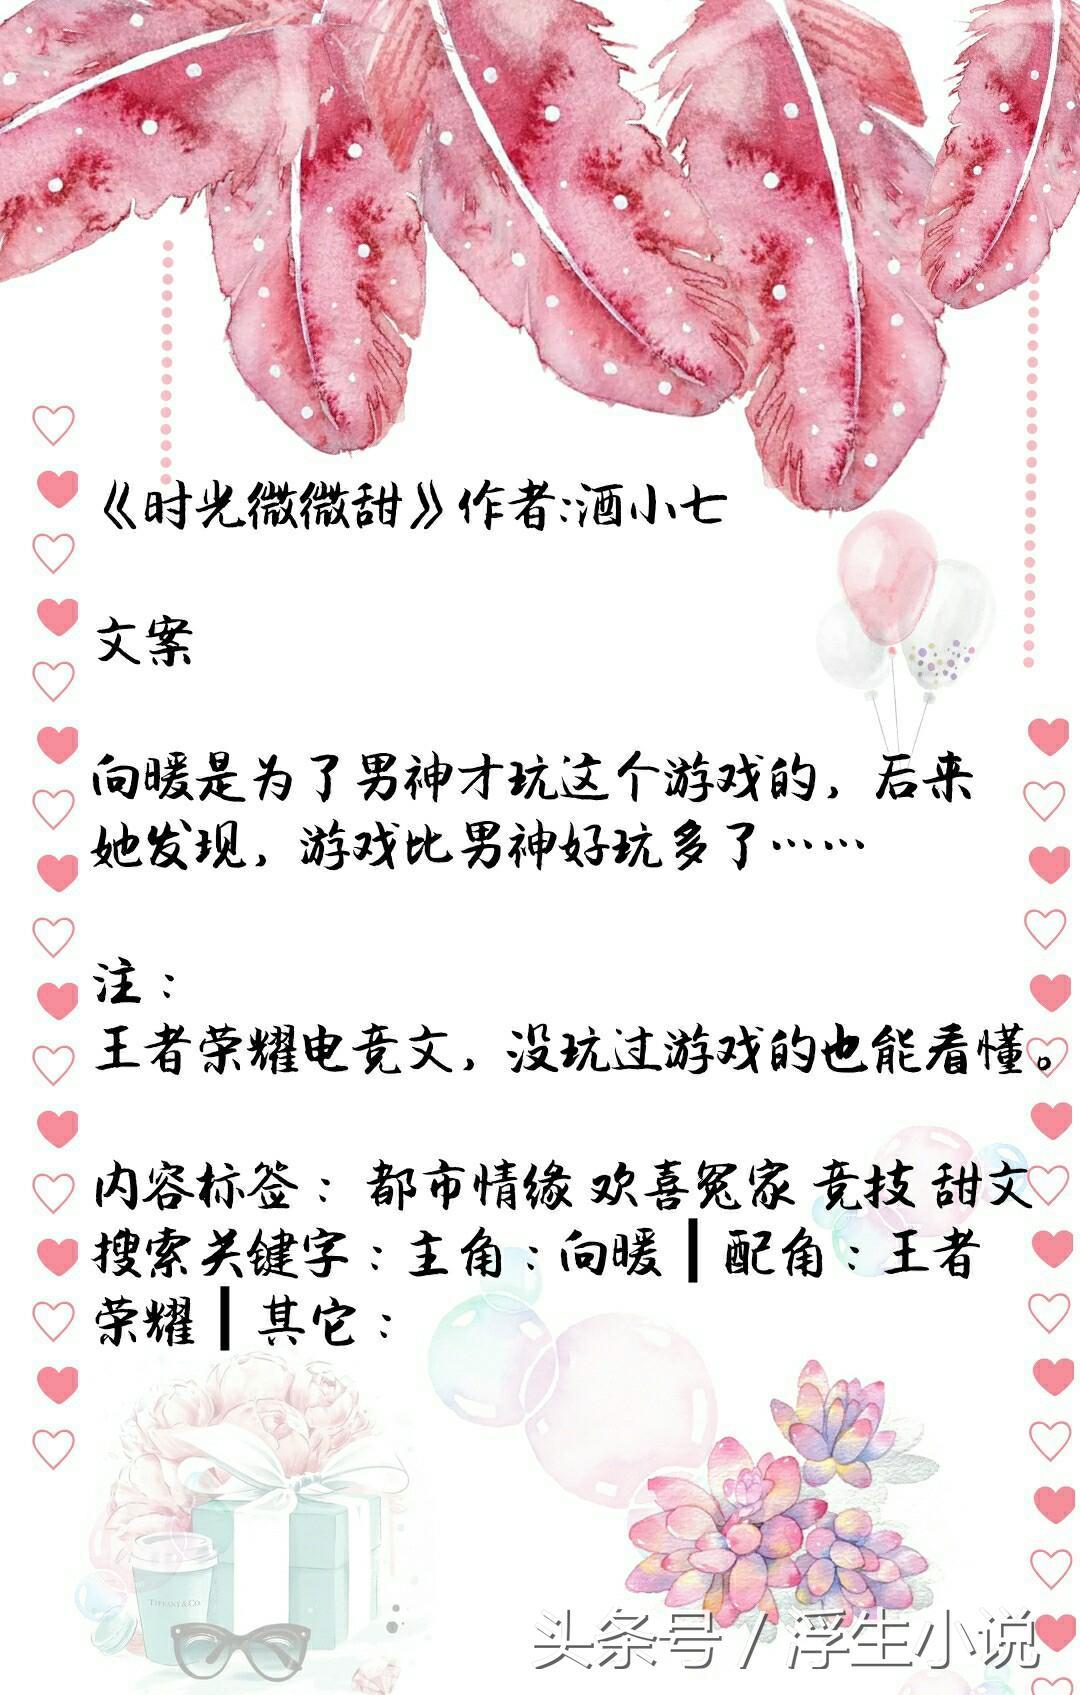 《时光微微甜》作者:酒小七
文案
向暖是为了男神才玩这个游戏的，后来
她发现，游戏比男神好玩多了……
注：
王者荣耀电竞文，没玩过游戏的也能看懂。
内容标签： 都市情缘 欢喜冤家 竞技 甜文
搜索关键字：主角：向暖┃配角：王者
荣耀┃其它：
TIFFANY & CO.
头条号 / 浮生小说